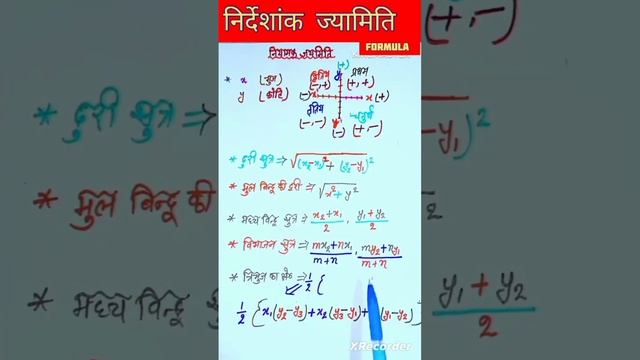 निर्देशांक ज्यामिति
FORMULA
(+)
प्रथम
(-,+) (+,+)
* x
(-) x (+)
y
(-,-) चतुर्थ
(-) (+,-)
* दुरी सुत्र ⇒ √(x₂-x₁)²+(y₂-y₁)²
* मुल बिन्दू की दुरी ⇒ √x²+y²
* मध्य बिन्दू सुत्र ⇒ x₂+x₁/2 , y₁+y₂/2
* विभाजन सुत्र ⇒ mx₂+nx₁/m+n , my₂+ny₁/m+n
* त्रिभुज का क्षे० ⇒ 1/2 {
1/2 { x₁(y₂-y₃)+x₂(y₃-y₁)+ (y₁-y₂)
* दुरी सुत्र ⇒
-y₁)²
* मुल बिन्दू की
* मध्य बिन्दू सुत्र
y₁+y₂/2
XRecorder